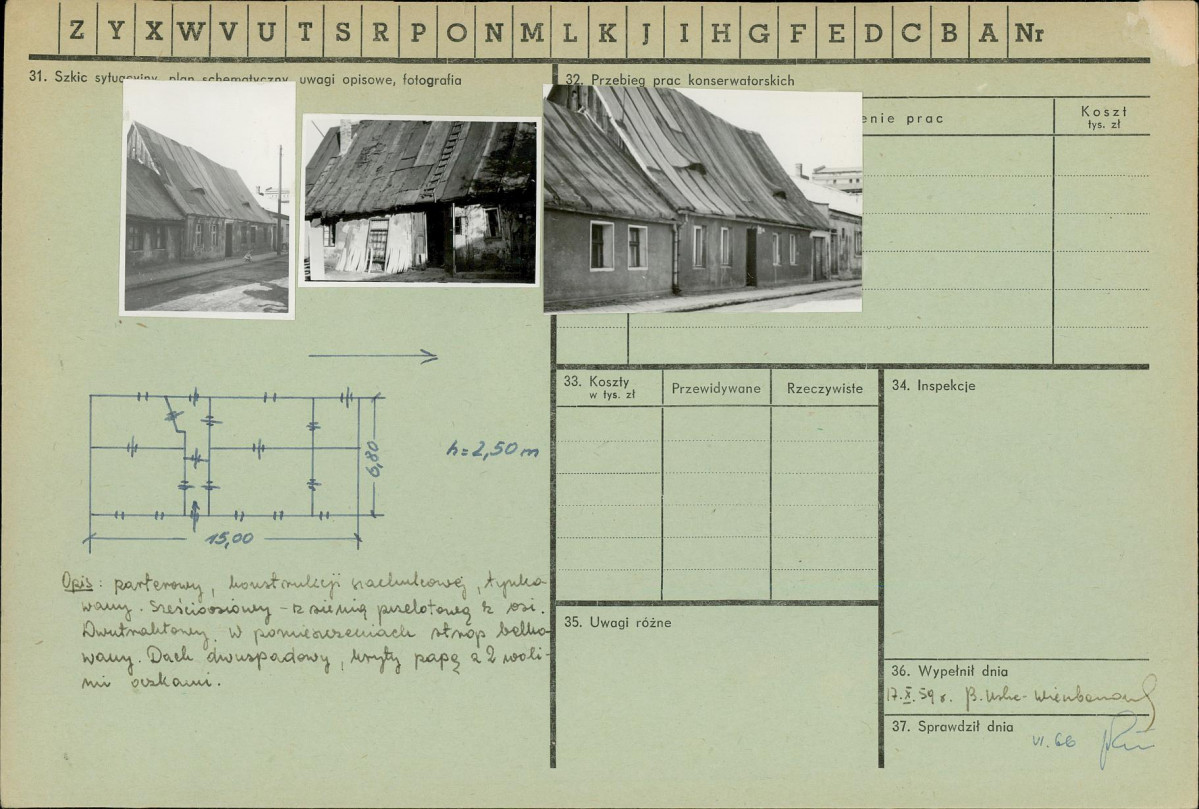 Z Y X W V U T S R P O N M L K J I H G F E D C B A Nr
31. Szkic sytuacyjny, plan schematyczny, uwagi opisowe, fotografia
h = 2,50 m
6,80
15,00
Opis: parterowy, konstrukcji szachulcowej, tynko-
wany. Sześcioosiowy – z sienią przelotową z osi.
Dwutraktowy. W pomieszczeniach strop belko-
wany. Dach dwuspadowy, kryty papą z 2 woli-
mi oczkami.
32. Przebieg prac konserwatorskich
enie prac
Koszt
tys. zł
33. Koszty
w tys. zł
Przewidywane
Rzeczywiste
34. Inspekcje
35. Uwagi różne
36. Wypełnił dnia
17.X.59 r. B.
37. Sprawdził dnia
VI.66